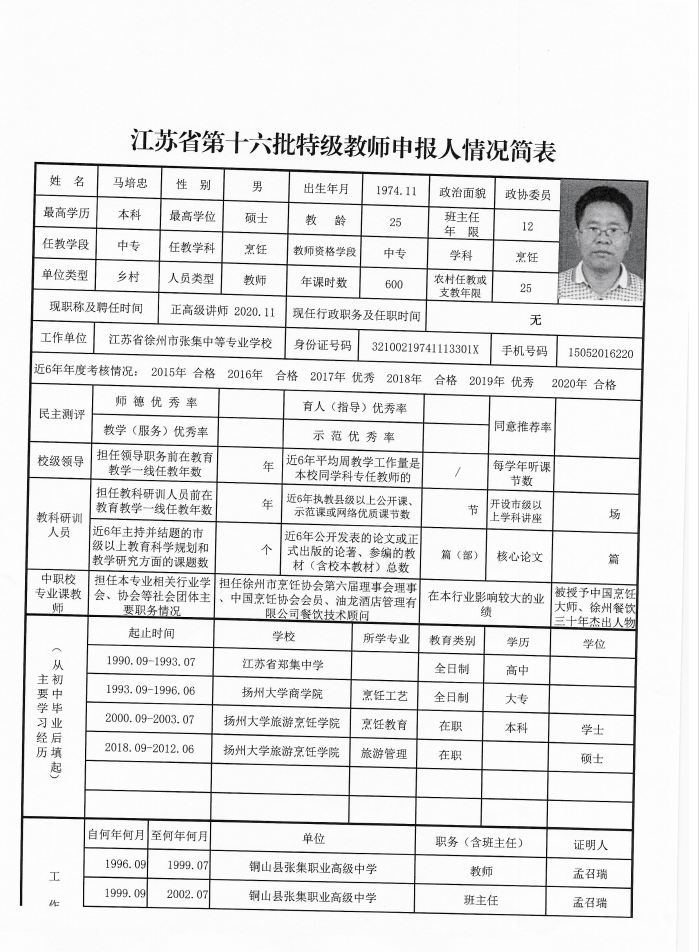 江苏省第十六批特级教师申报人情况简表
姓 名 马培忠 性 别 男 出生年月 1974.11 政治面貌 政协委员
最高学历 本科 最高学位 硕士 教 龄 25 班主任年 限 12
任教学段 中专 任教学科 烹饪 教师资格学段 中专 学科 烹饪
单位类型 乡村 人员类型 教师 年课时数 600 农村任教或支教年限 25
现职称及聘任时间 正高级讲师 2020.11 现任行政职务及任职时间 无
工作单位 江苏省徐州市张集中等专业学校 身份证号码 32100219741113301X 手机号码 15052016220
近6年年度考核情况： 2015年 合格 2016年 合格 2017年 优秀 2018年 合格 2019年 优秀 2020年 合格
民主测评 师 德 优 秀 率 育人（指导）优秀率 同意推荐率
教学（服务）优秀率 示 范 优 秀 率
校级领导 担任领导职务前在教育教学一线任教年数 年 近6年平均周教学工作量是本校同学科专任教师的 / 每学年听课节数
教科研训人员 担任教科研训人员前在教育教学一线任教年数 年 近6年执教县级以上公开课、示范课或网络优质课节数 节 开设市级以上学科讲座 场
近6年主持并结题的市级以上教育科学规划和教学研究方面的课题数 个 近6年公开发表的论文或正式出版的论著、参编的教材（含校本教材）总数 篇（部） 核心论文 篇
中职校专业课教师 担任本专业相关行业学会、协会等社会团体主要职务情况 担任徐州市烹饪协会第六届理事会理事、中国烹饪协会会员、油龙酒店管理有限公司餐饮技术顾问 在本行业影响较大的业绩 被授予中国烹饪大师、徐州餐饮三十年杰出人物
主要学习经历（从初中毕业后填起）
起止时间 学校 所学专业 教育类别 学历 学位
1990.09-1993.07 江苏省郑集中学 全日制 高中
1993.09-1996.06 扬州大学商学院 烹饪工艺 全日制 大专
2000.09-2003.07 扬州大学旅游烹饪学院 烹饪教育 在职 本科 学士
2018.09-2012.06 扬州大学旅游烹饪学院 旅游管理 在职 硕士
自何年何月 至何年何月 单位 职务（含班主任） 证明人
1996.09 1999.07 铜山县张集职业高级中学 教师 孟召瑞
工
1999.09 2002.07 铜山县张集职业高级中学 班主任 孟召瑞